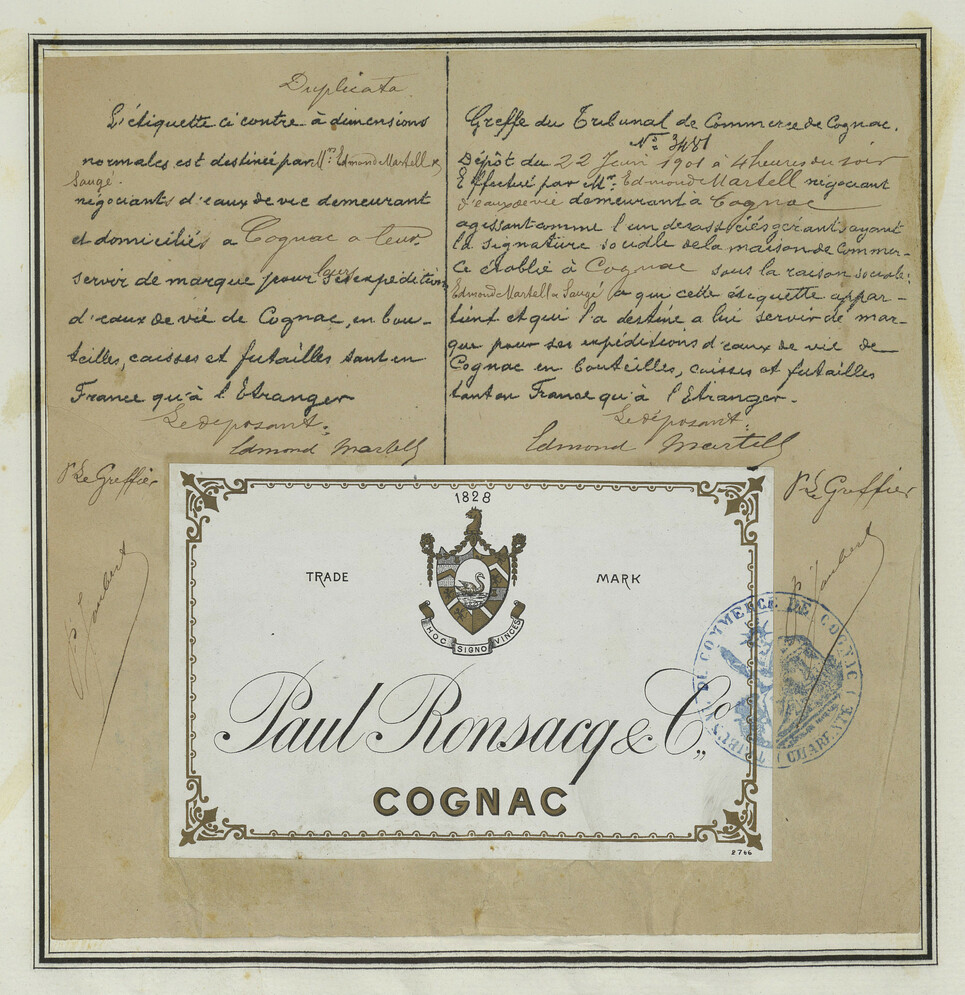 Duplicata
L'étiquette ci contre à dimensions
normales est destinée par Mrs. Edmond Martell &
Saugé.
négociants d'eaux de vie demeurant
et domiciliés à Cognac a leur
servir de marque pour leurs expéditions
d'eaux de vie de Cognac, en bou-
teilles, caisses et futailles tant en
France qu'à l'Etranger
Le déposant:
Edmond Martell
Pr Le Greffier
Greffe du Tribunal de Commerce de Cognac.
No. 3481
Dépôt du 22 Juin 1901 à 4 heures du soir
Effectué par Mr. Edmond Martell négociant
d'eaux de vie demeurant à Cognac
agissant comme l'un des associés gérants, ayant
la signature sociale de la maison de Commer-
ce établie à Cognac sous la raison sociale:
Edmond Martell & Saugé a qui cette étiquette appar-
tient et qui l'a destine a lui servir de mar-
que pour ses expéditions d'eaux de vie de
Cognac en bouteilles, caisses et futailles
tant en France qu'à l'Etranger.
Le déposant:
Edmond Martell
Pr Le Greffier
1828
TRADE MARK
HOC SIGNO VINCES
Paul Ronsacq & Co,,
COGNAC
8766
TRIBUNAL DE COMMERCE DE COGNAC (CHARENTE)